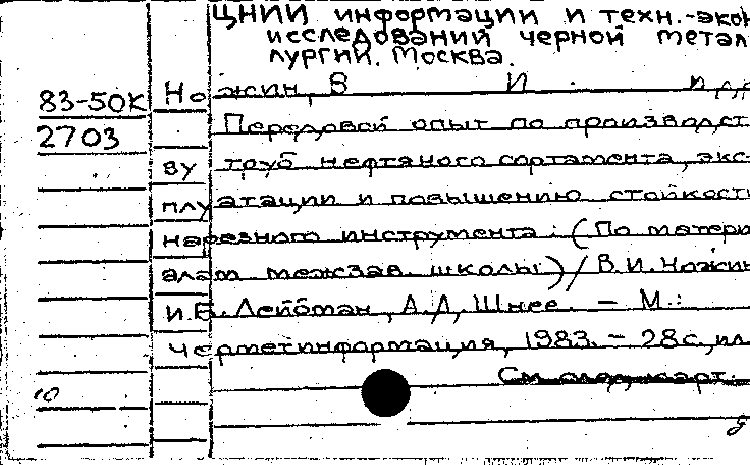 ЦНИИ информации и техн.-экон
исследований черной метал
лургии. Москва.
83-50К Ножин, В И. и др
2703 Передовой опыт по производст
ву труб нефтяного сортамента, экс
плуатации и повышению стойкость
нарезного инструмента: (По матери
алам межзав. школы) / В.И. Ножин
И.Е. Лейбман, А.Д. Шнее. - М.:
Черметинформация, 1983. - 28с., ил
См. след. карт.